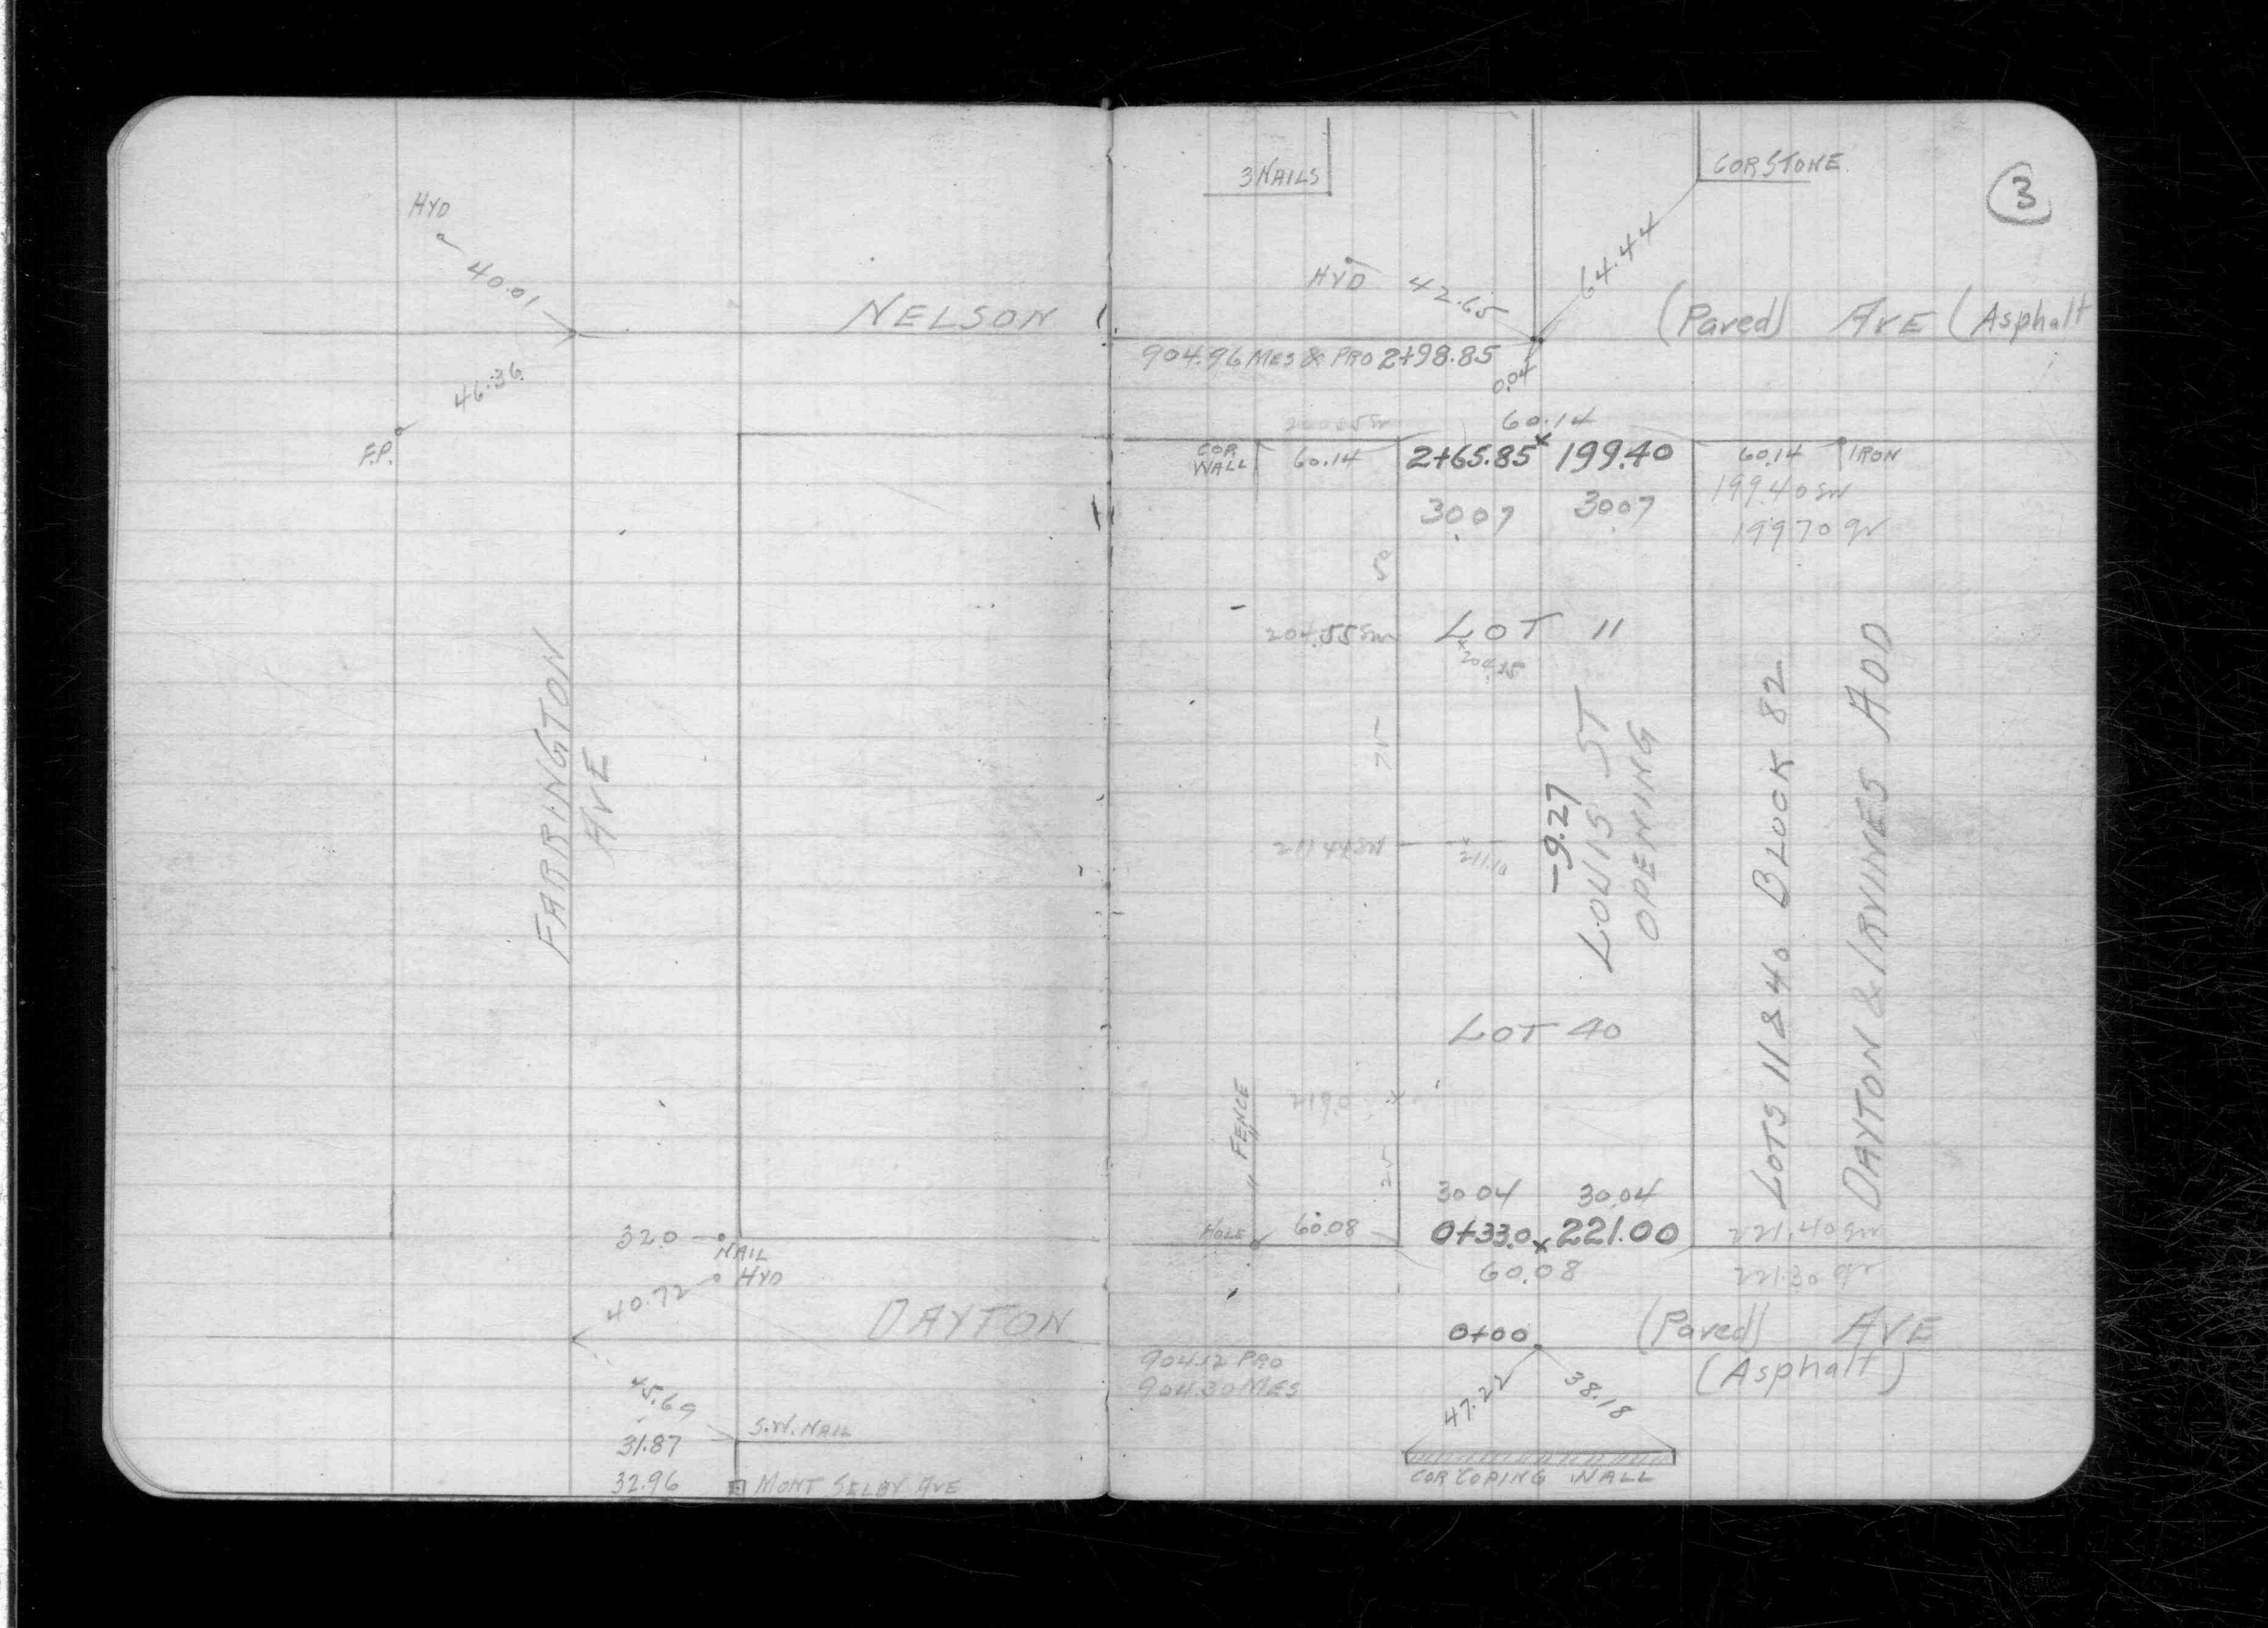 HYD
40.01
NELSON
46.36
F.P.
FARRINGTON
AVE
32.0
NAIL
HYD
40.72
DAYTON
45.69
S.W. NAIL
31.87
32.96
MONT SELBY AVE
3 NAILS
COR STONE
3
64.44
HYD 42.65
(Paved) AVE (Asphalt
904.96 MES & PRO 2+98.85
0.04
60.14
COR WALL
60.14
2+65.85 x 199.40
60.14
IRON
199.40 SW
30.07 30.07
199.70 gr
50
204.55 SW
LOT 11
75
LOUIS ST
OPENING
-9.27
LOTS 11 & 40 BLOCK 82
DAYTON & IRVINES ADD
211.44 SW
211.10
LOT 40
219.0
FENCE
25
30.04 30.04
HOLE
60.08
0+33.0 x 221.00
221.40 SW
60.08
221.30 gr
0+00
(Paved) AVE
(Asphalt)
904.12 PRO
904.30 MES
47.22
38.18
COR COPING WALL